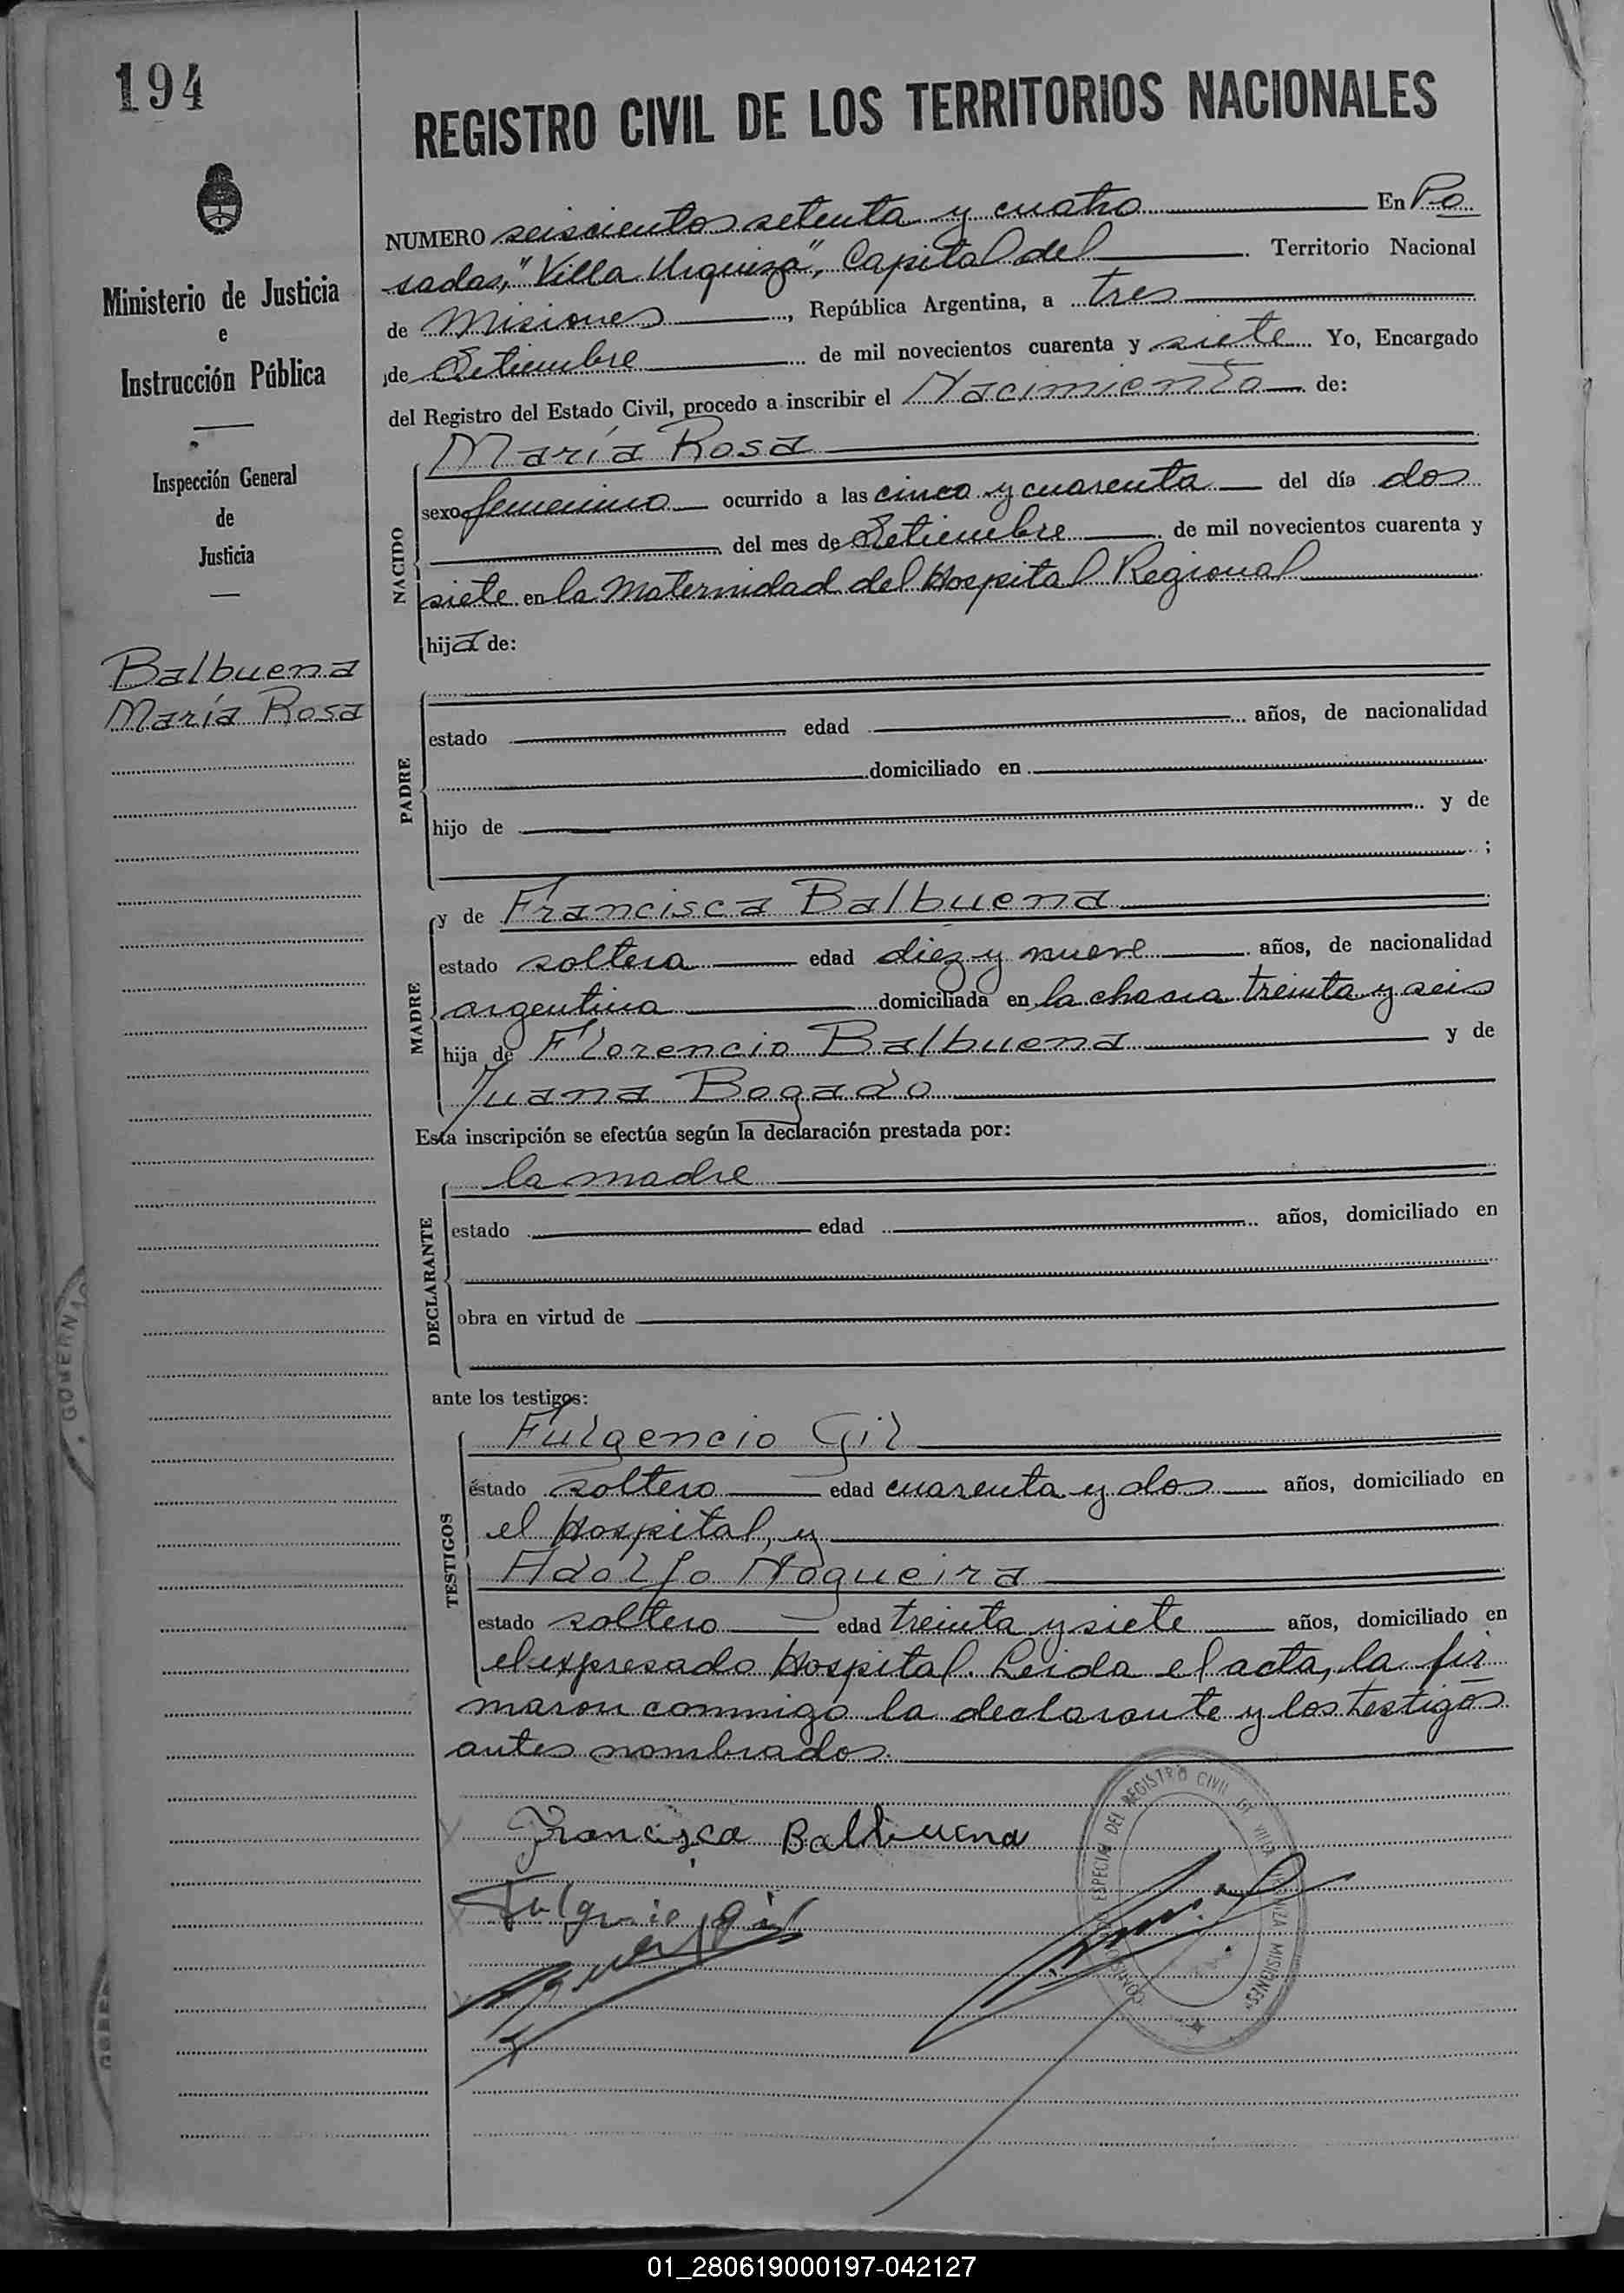 194
REGISTRO CIVIL DE LOS TERRITORIOS NACIONALES
Ministerio de Justicia
e
Instrucción Pública
Inspección General
de
Justicia
Balbuena
María Rosa
NUMERO seiscientos setenta y cuatro En Po
sadas, "Villa Urquiza", Capital del Territorio Nacional
de Misiones, República Argentina, a tres
de Setiembre de mil novecientos cuarenta y siete Yo, Encargado
del Registro del Estado Civil, procedo a inscribir el Nacimiento de:
NACIDO
María Rosa
sexo femenino ocurrido a las cinco y cuarenta del día dos
del mes de Setiembre de mil novecientos cuarenta y
siete en la Maternidad del Hospital Regional
hija de:
PADRE
estado edad años, de nacionalidad
domiciliado en
hijo de y de
;
MADRE
y de Francisca Balbuena
estado soltera edad diez y nueve años, de nacionalidad
argentina domiciliada en la chacra treinta y seis
hija de Florencio Balbuena y de
Juana Bogado
Esta inscripción se efectúa según la declaración prestada por:
DECLARANTE
la madre
estado edad años, domiciliado en
obra en virtud de
ante los testigos:
TESTIGOS
Fulgencio Gil
estado soltero edad cuarenta y dos años, domiciliado en
el Hospital, y
Adolfo Nogueira
estado soltero edad treinta y siete años, domiciliado en
el expresado Hospital. Leida el acta, la fir
maron conmigo la declarante y los testigos
antes nombrados.
Francisca Balbuena
Fulgencio Gil
DEL REGISTRO CIVIL DE VILLA URQUIZA MISIONES
GOBERNA
01_280619000197-042127